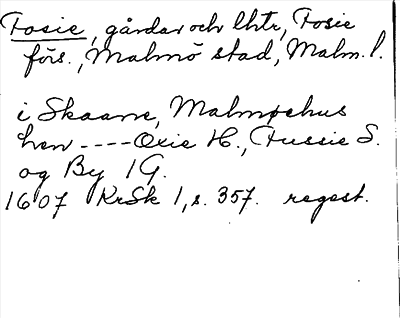 Fosie, gårdar och lhtr, Fosie
förs., Malmö stad, Malm. l.
i Skaane, Malmøehus
len ---- Oxie H., Fussie S.
og By 1 G.
1607 KrSk 1, s. 357. regest.